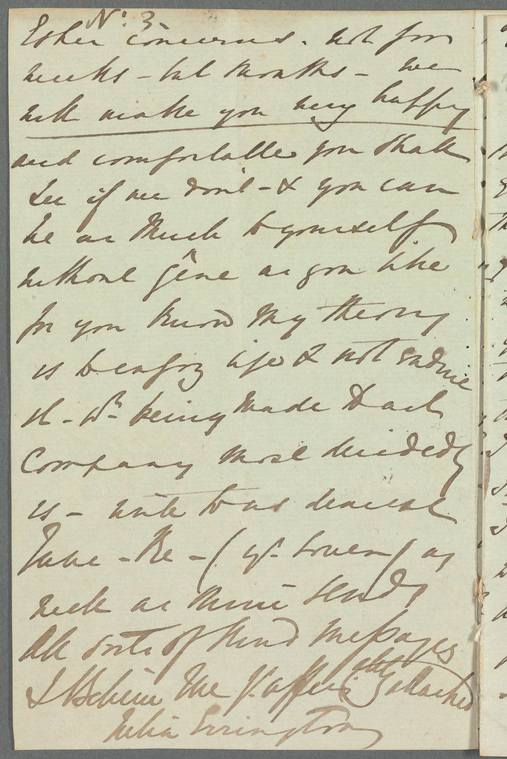 No. 3
Esher concerns. not for
weeks - but months - we
will make you very happy
and comfortable you shall
see if we don't - & you can
be as much to yourself
without gêne as you like
for you know my theory
is to enjoy life & not endure
it - wh being made to act
company most decidedly
is - write to us dearest
Jane - He - (yr lover) as
well as mine sends
all sorts of kind messages
& believe me yr affectly attached
Julia Errington